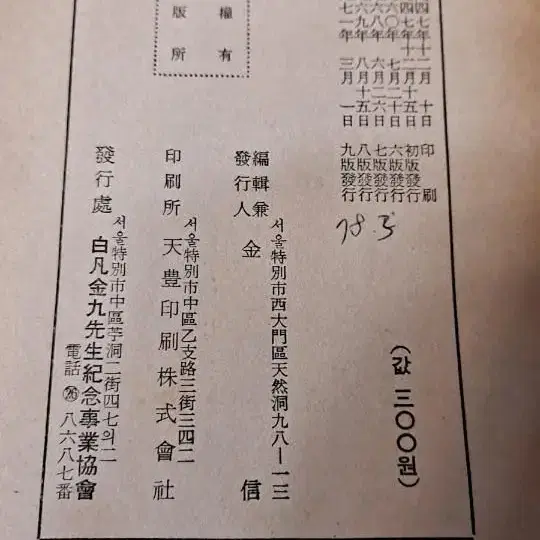 四七年十二月 十日 印刷
四七年十二月十五日 初版發行
六〇年 七月二十日 六版發行
六八年 六月二六日 七版發行
六九年 八月十五日 八版發行
七一年 三月 一日 九版發行
(값 三〇〇원)
編輯兼
發行人
서울特別市西大門區天然洞九八—一三
金 信
印刷所
서울特別市中區乙支路三街三四二
天豊印刷株式會社
發行處
서울特別市中區苧洞二街四七의二
白凡金九先生紀念事業協會
電話 ㉖ 八六八七番
權有
版所